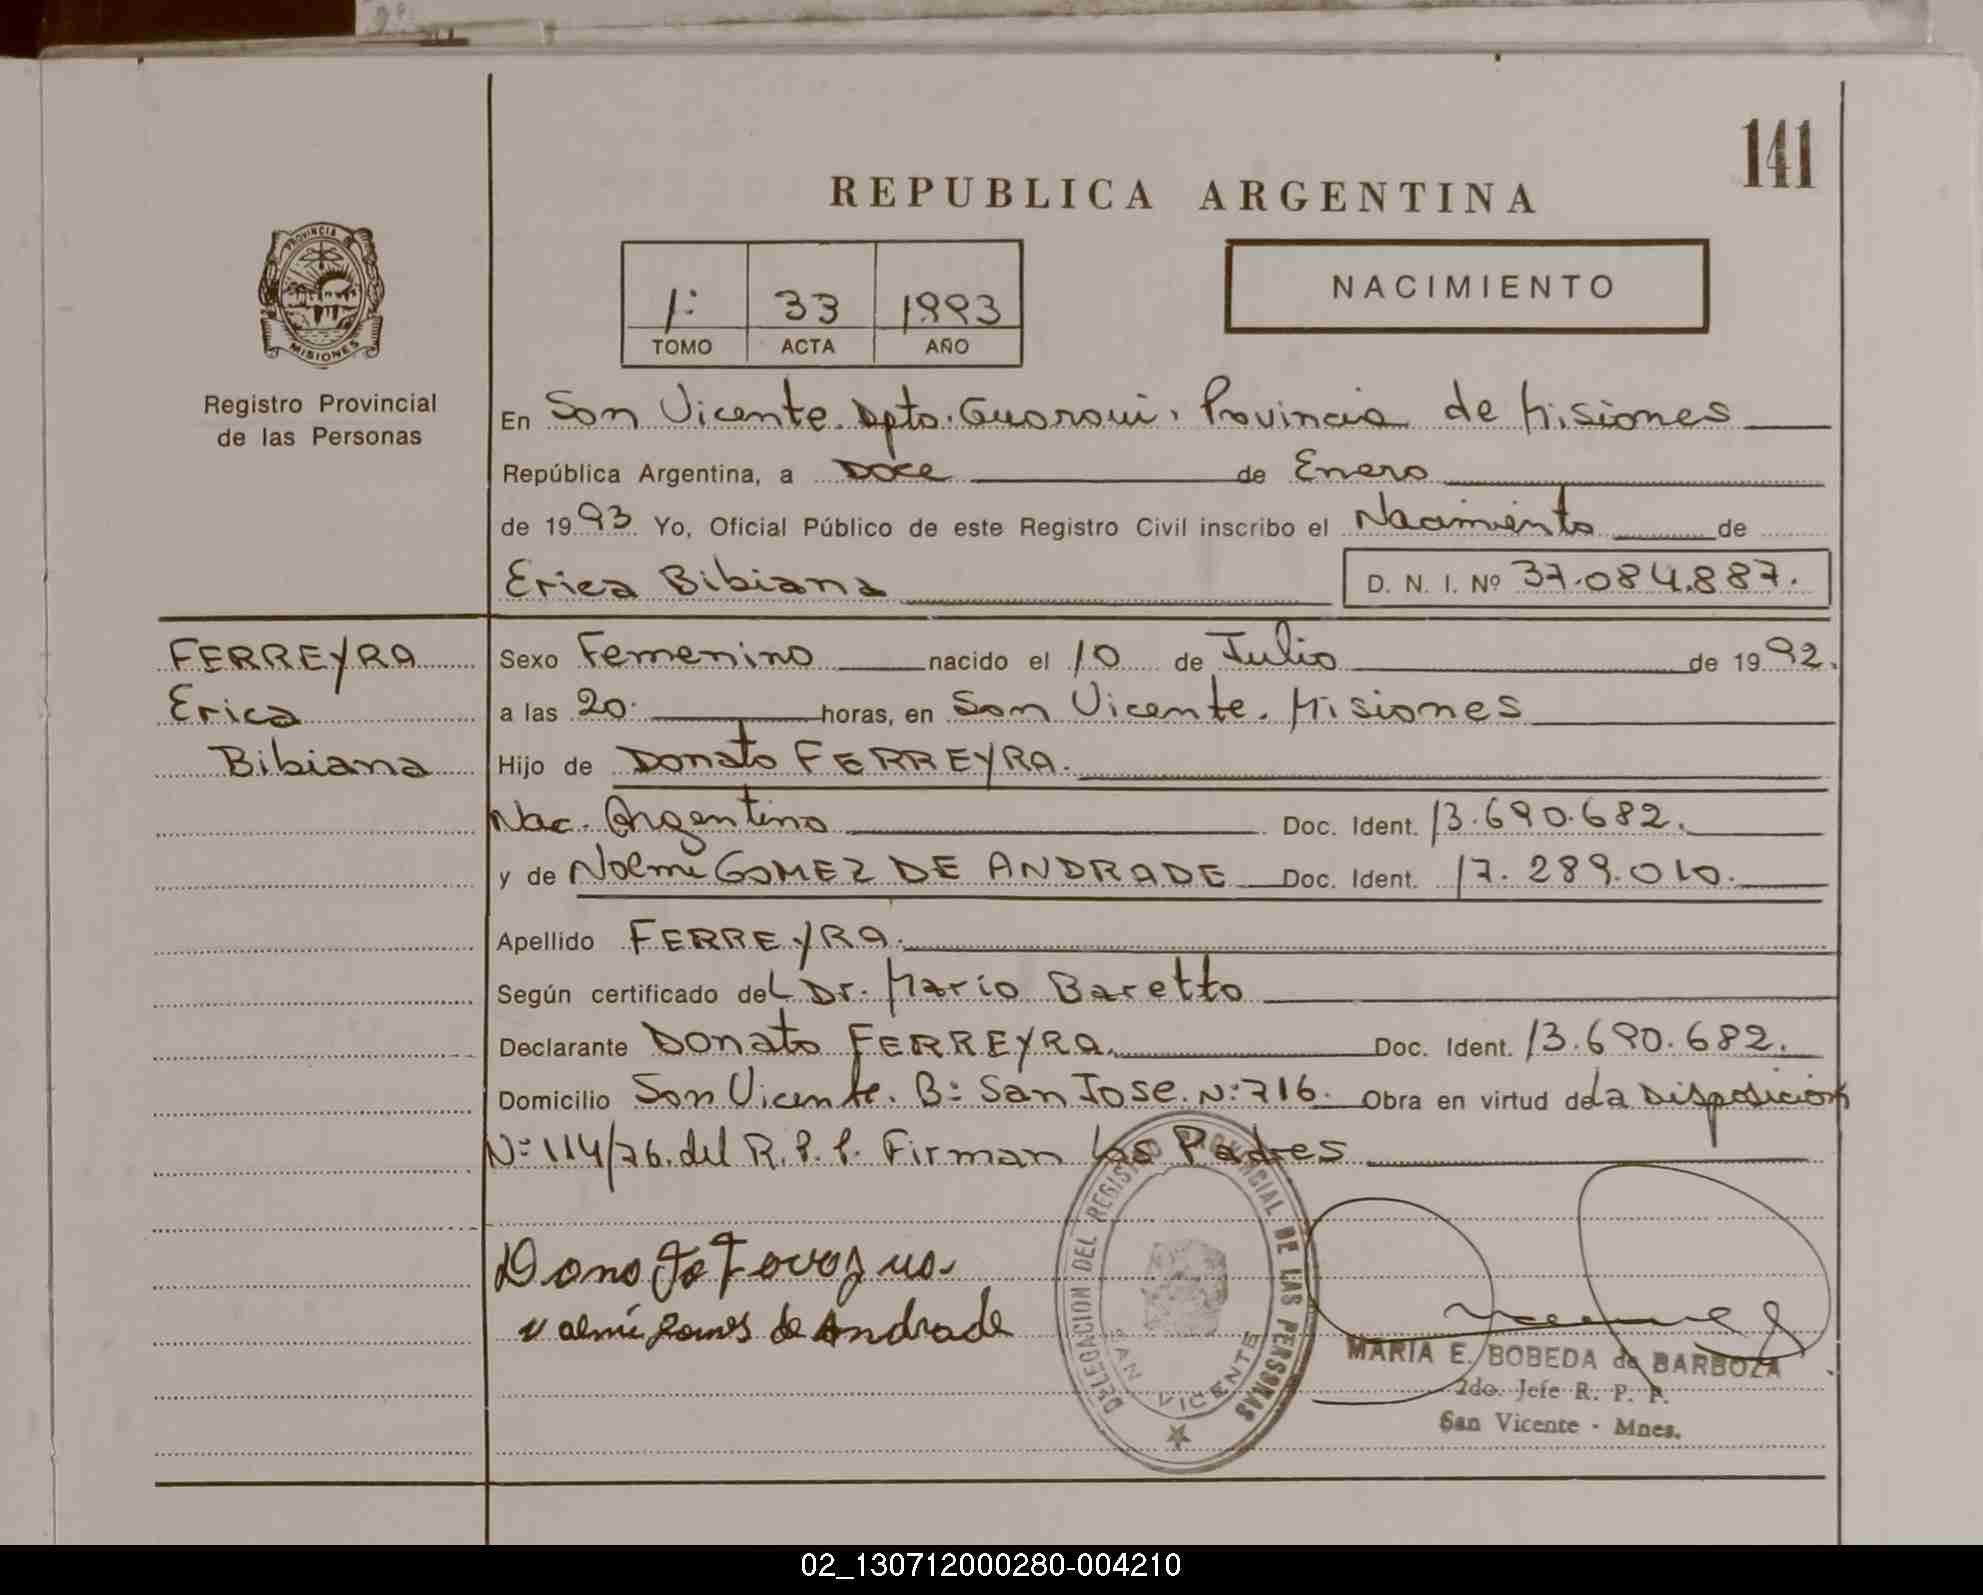 141
REPUBLICA ARGENTINA
PROVINCIA DE
MISIONES
1º 33 1993
TOMO ACTA AÑO
NACIMIENTO
Registro Provincial
de las Personas
En San Vicente. Dpto. Guaraní. Provincia de Misiones
República Argentina, a Doce de Enero
de 1993 Yo, Oficial Público de este Registro Civil inscribo el Nacimiento de
Erica Bibiana D. N. I. Nº 37.084.887.
FERREYRA
Erica
Bibiana
Sexo Femenino nacido el 10 de Julio de 1992.
a las 20. horas, en San Vicente. Misiones
Hijo de Donato FERREYRA.
Nac. Argentino Doc. Ident. 13.690.682.
y de Noemi GOMEZ DE ANDRADE Doc. Ident. 17.289.010.
Apellido FERREYRA.
Según certificado del Dr. Mario Baretto
Declarante Donato FERREYRA. Doc. Ident. 13.690.682.
Domicilio San Vicente. Bº San Jose. Nº 716. Obra en virtud de la Disposición
Nº 114/76. del R.P.P. Firman los Padres
DELEGACION DEL REGISTRO PROVINCIAL DE LAS PERSONAS
SAN VICENTE
Donato
de Andrade
MARIA E. BOBEDA de BARBOZA
2do. Jefe R. P. P.
San Vicente - Mnes.
02_130712000280-004210